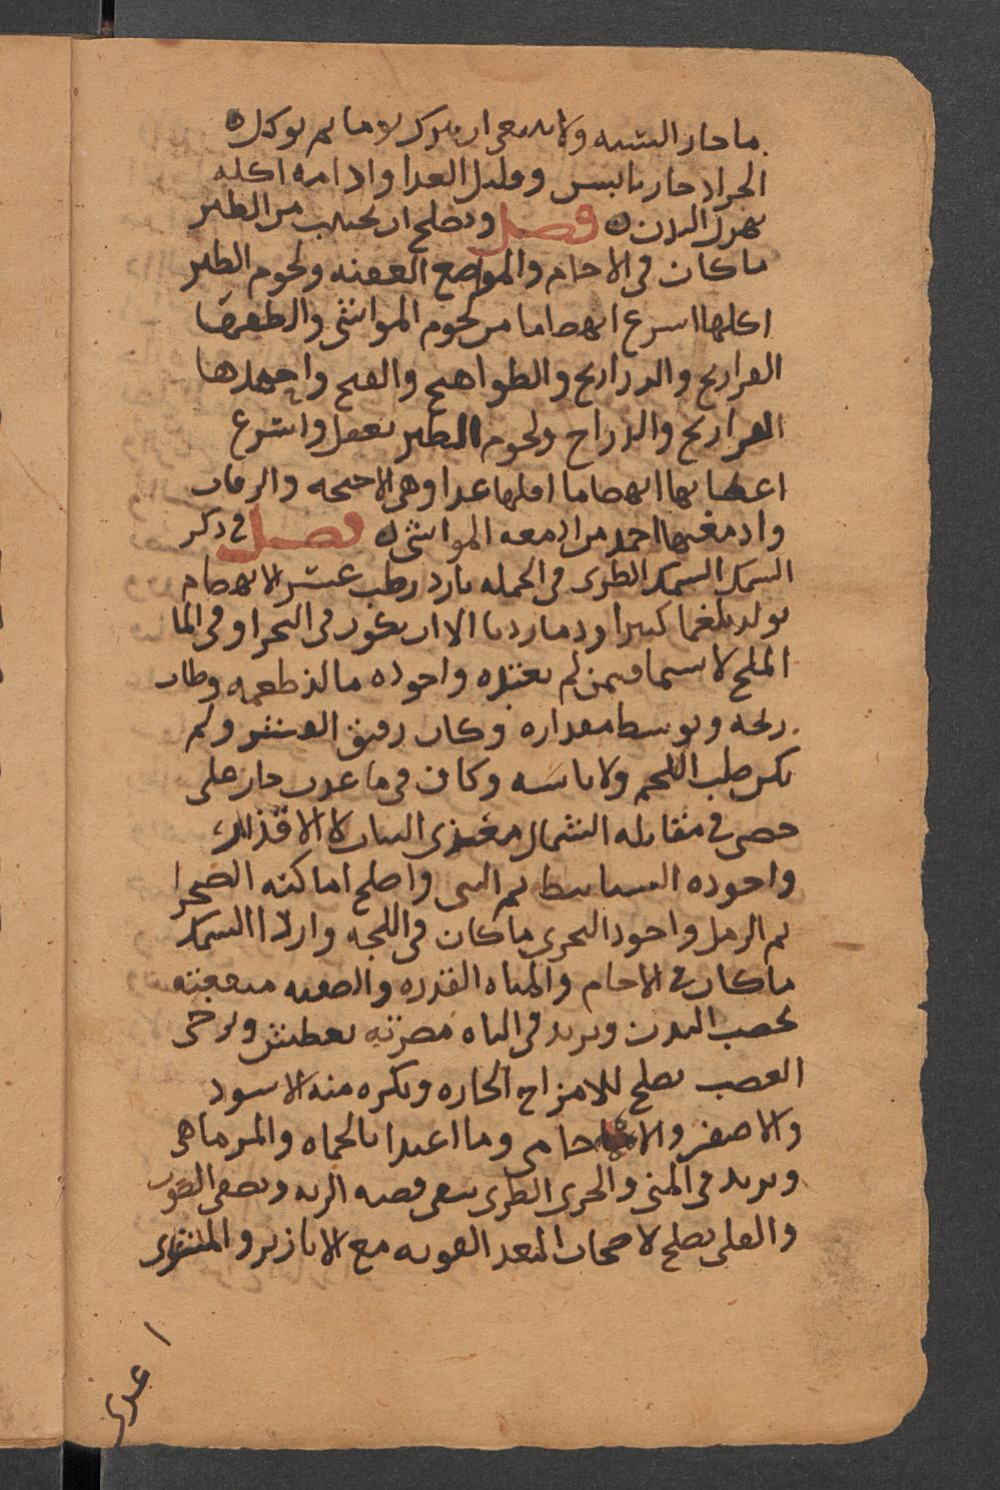 ما جاز السنه ولا ينبغى ان يترك يوما لم يوكل ه
الجراد حار يابس وقليل الغدا وادامه اكله
يهزل البدن ه فصل ويصلح ان يجتنب من الطير
ماكان فى الاجام والمواضع العفنه ولحوم الطير
اكلها اسرع انهضاما من لحوم المواشى والطفها
الفراريج والدراريج والطواهيج والقبج واحمدها
الفراريج والدراج ولحوم الطير تعقل واسرع
اعضايها انهضاما اقلها غدا وهى الاجنحه والرقاب
وادمغتها احمد من ادمغه المواشى ه فصل فى ذكر
السمك السمك الطرى فى الجمله بارد رطب عسر الانهضام
يولد بلغما كثيرا ودما رديا الا ان يكون فى البحر او فى الما
الملح لا سيما فيمن لم يعتده واجوده ما لذ طعمه وطاب
ريحه وتوسط مقداره وكان رقيق القشر ولم
يكن صلب اللحم ولا يابسه وكان فى ما عذب جار على
حصى فى مقابله الشمال مغتذى النبات لا الاقذار
واجوده الشبابيط ثم البنى واصلح اماكنه الصخرا
ثم الرمل واجود البحرى ماكان فى اللجه واردا السمك
ماكان فى الاجام والمياه القذره والضعيفه منفعته
يخصب البدن ويزيد فى الباه مضرته يعطش ويرخى
العصب يصلح للامزاج الحاره ويكره منه الاسود
والاصفر والاجامى وما اغتدا بالحماه والمرماهى
ويزيد فى المنى والجرى الطرى ينقى قصبه الريه ويصفى الصوت
والقلى يصلح لاصحاب المعد القويه مع الابازير والمشوى
اغدى